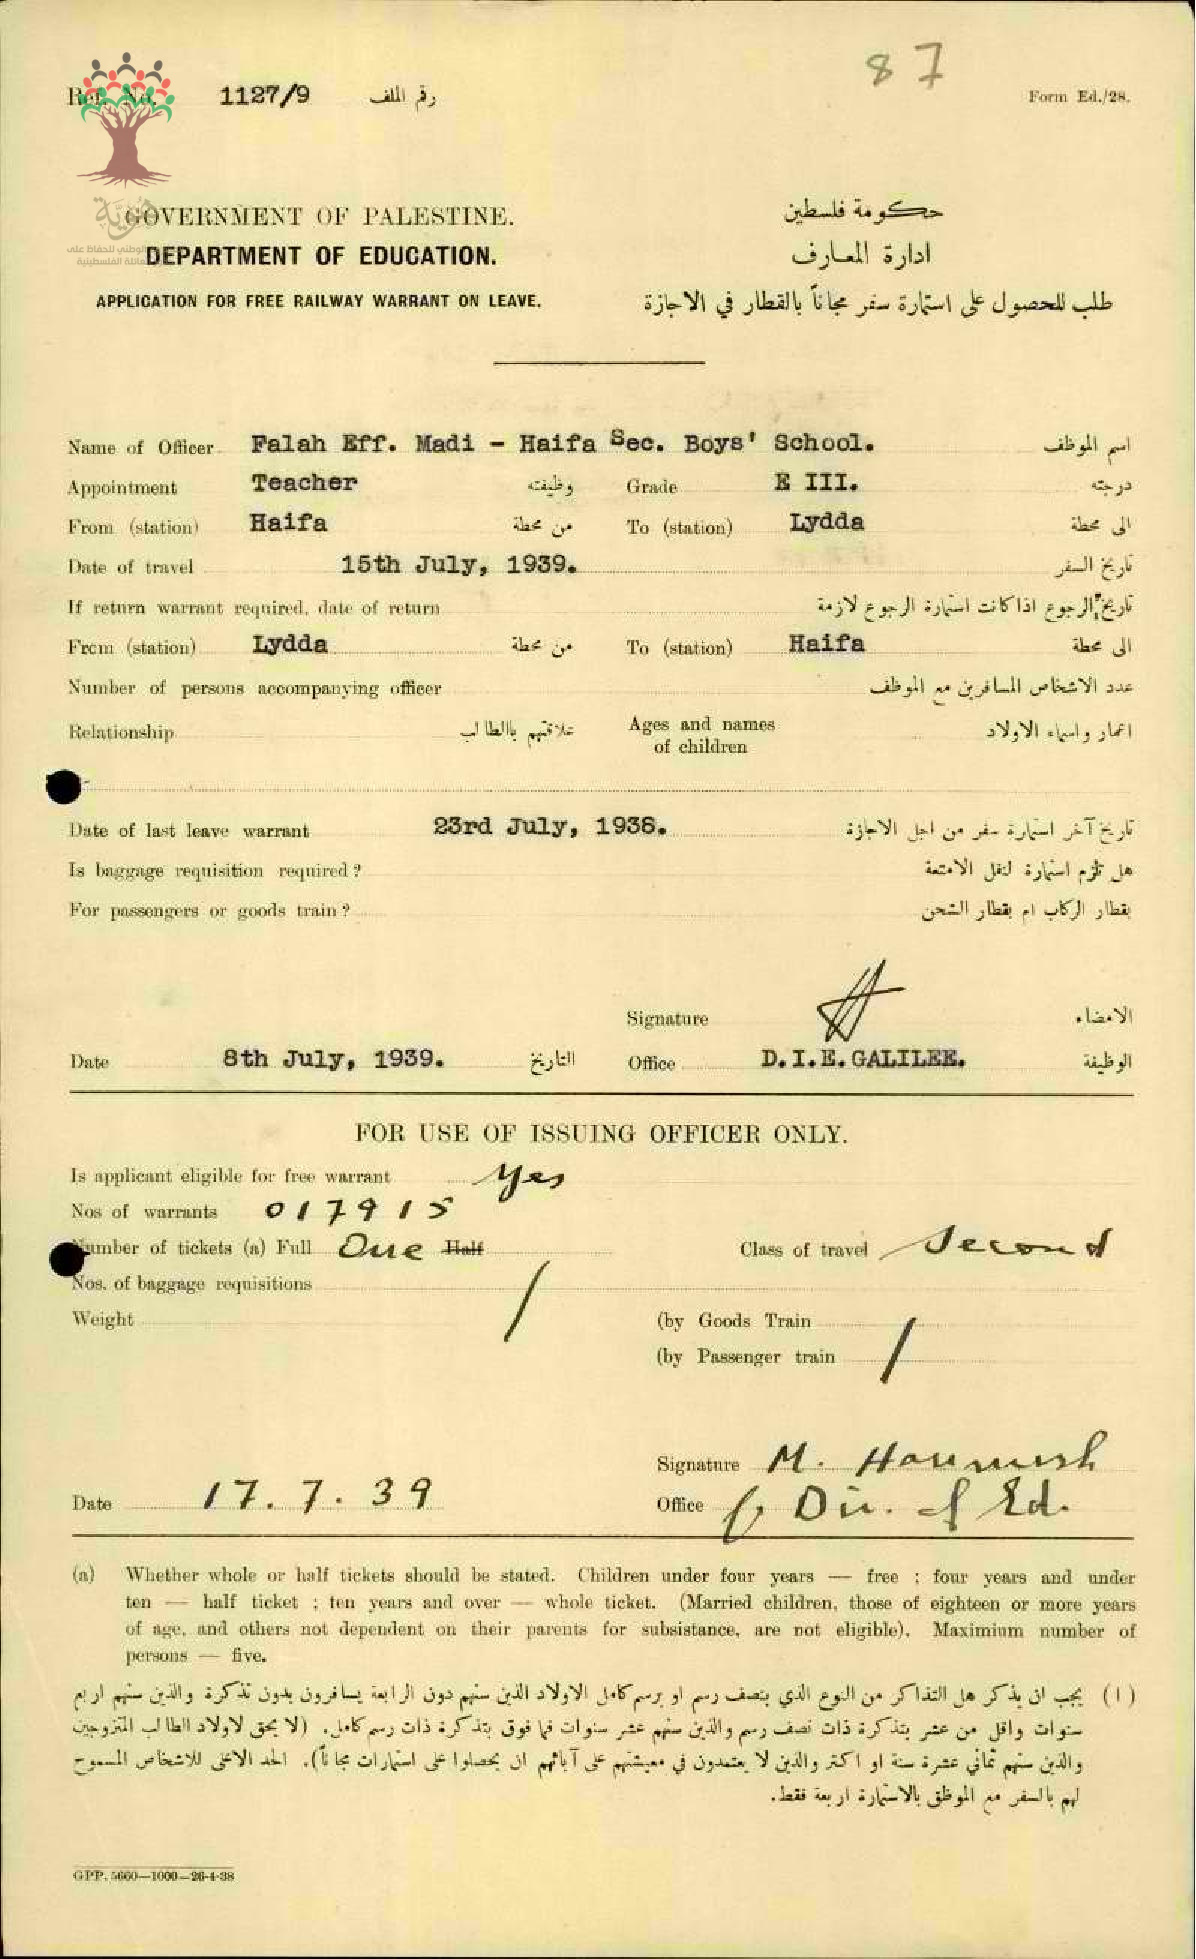 87
Ref. No. 1127/9 رقم الملف
Form Ed./28.
هوية
GOVERNMENT OF PALESTINE. حكومة فلسطين
الوطني للحفاظ على
العائلة الفلسطينية
DEPARTMENT OF EDUCATION. ادارة المعارف
APPLICATION FOR FREE RAILWAY WARRANT ON LEAVE. طلب للحصول على استمارة سفر مجاناً بالقطار في الاجازة
Name of Officer Falah Eff. Madi - Haifa Sec. Boys' School. اسم الموظف
Appointment Teacher وظيفته Grade E III. درجته
From (station) Haifa من محطة To (station) Lydda الى محطة
Date of travel 15th July, 1939. تاريخ السفر
If return warrant required, date of return تاريخ الرجوع اذا كانت استمارة الرجوع لازمة
From (station) Lydda من محطة To (station) Haifa الى محطة
Number of persons accompanying officer عدد الاشخاص المسافرين مع الموظف
Relationship علاقتهم بالطالب Ages and names of children اعمار واسماء الاولاد
Date of last leave warrant 23rd July, 1938. تاريخ آخر استمارة سفر من اجل الاجازة
Is baggage requisition required? هل تلزم استمارة لنقل الامتعة
For passengers or goods train? بقطار الركاب ام بقطار الشحن
Signature الامضاء
Date 8th July, 1939. التاريخ Office D.I.E. GALILEE. الوظيفة
FOR USE OF ISSUING OFFICER ONLY.
Is applicant eligible for free warrant yes
Nos of warrants 017915
Number of tickets (a) Full One Half Class of travel Second
Nos. of baggage requisitions /
Weight (by Goods Train
(by Passenger train /
Signature M.
Date 17.7.39 Office Dir. of Ed.
(a) Whether whole or half tickets should be stated. Children under four years — free ; four years and under
ten — half ticket ; ten years and over — whole ticket. (Married children, those of eighteen or more years
of age, and others not dependent on their parents for subsistance, are not eligible). Maximium number of
persons — five.
(١) يجب ان يذكر هل التذاكر من النوع الذي بنصف رسم او برسم كامل الاولاد الذين سنهم دون الرابعة يسافرون بدون تذكرة والذين سنهم اربع
سنوات واقل من عشر بتذكرة ذات نصف رسم والذين سنهم عشر سنوات فما فوق بتذكرة ذات رسم كامل. (لا يحق لاولاد الطالب المتزوجين
والذين سنهم ثماني عشرة سنة او اكثر والذين لا يعتمدون في معيشتهم على آبائهم ان يحصلوا على استمارات مجاناً). الحد الاعلى للاشخاص المسموح
لهم بالسفر مع الموظق بالاستمارة اربعة فقط.
GPP. 5660—1000—26-4-38